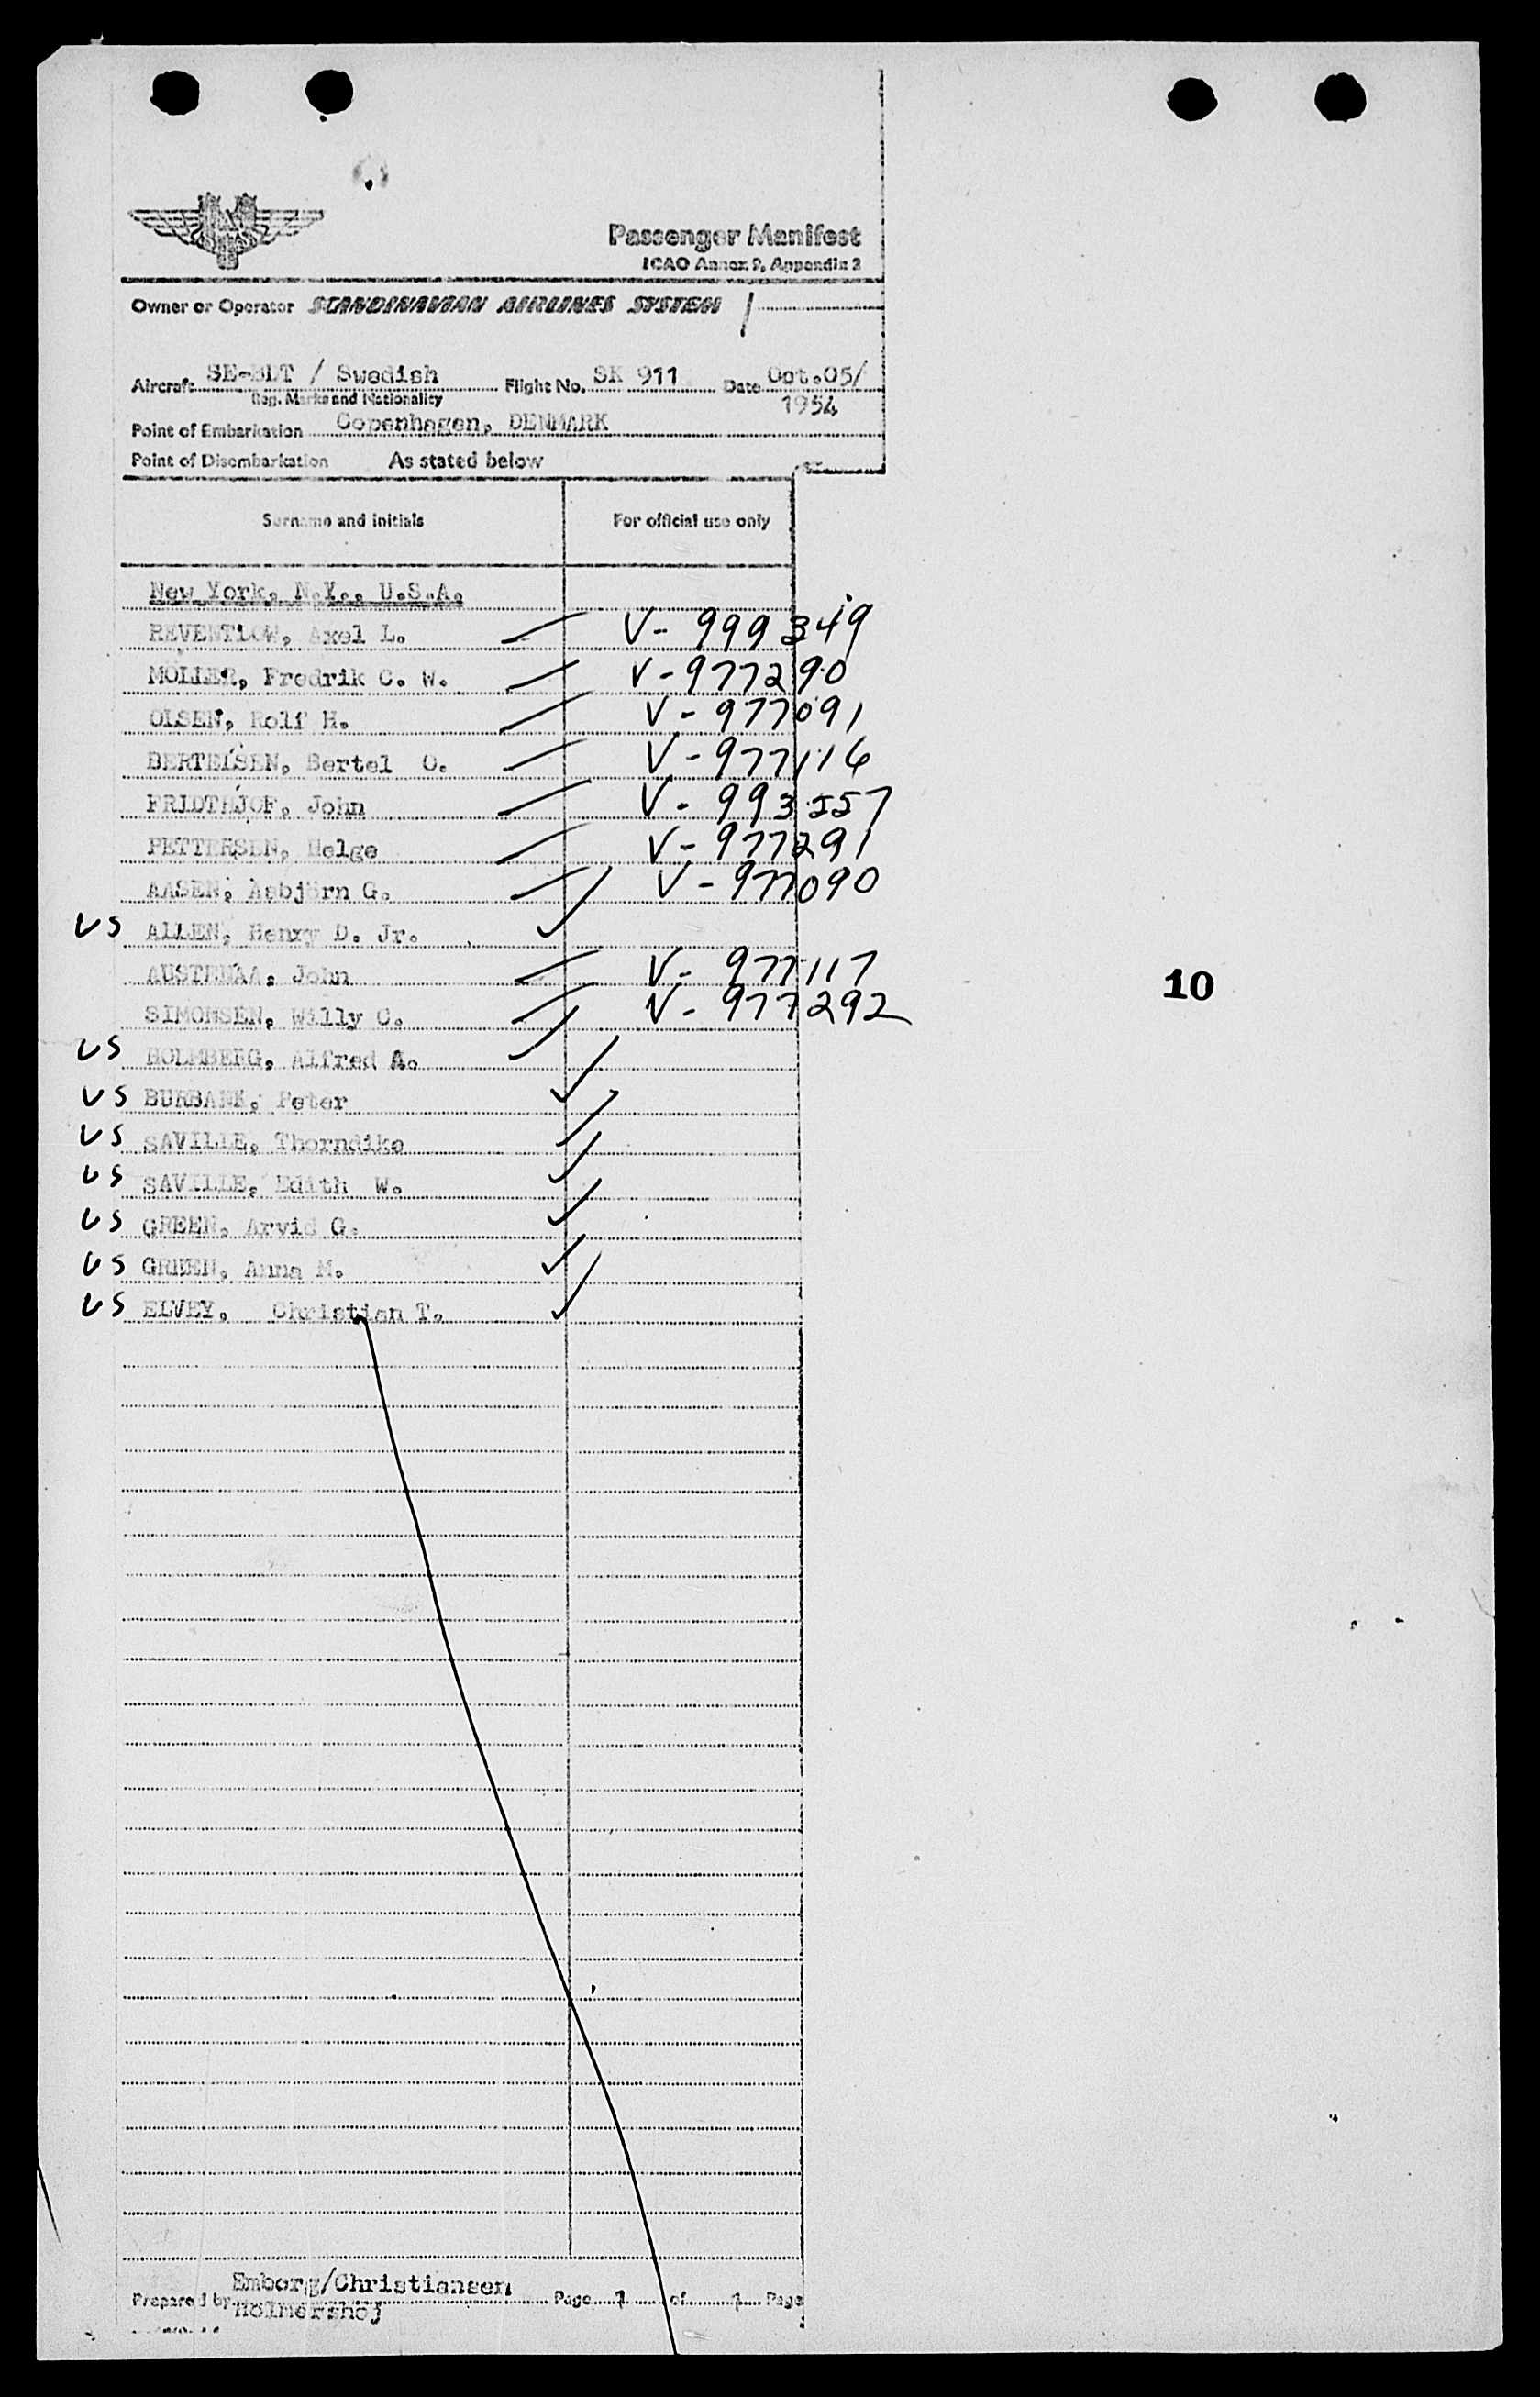 Passenger Manifest
ICAO Annex 9, Appendix 2
Owner or Operator SCANDINAVIAN AIRLINES SYSTEM /
Aircraft SE-BDT / Swedish Flight No. SK 911 Date Oct.05/
Reg. Marks and Nationality 1954
Point of Embarkation Copenhagen, DENMARK
Point of Disembarkation As stated below
Surname and initials For official use only
New York, N.Y., U.S.A.
REVENTLOW, Axel L. V- 999349
MOLLER, Fredrik C. W. V-977290
OLSEN, Rolf H. V-977091
BERTELSEN, Bertel O. V-977116
FRIDTHJOF, John V- 993557
PETTERSEN, Helge V-977291
AASEN, Asbjörn G. V-977090
US ALLEN, Henry D. Jr.
AUSTENAA, John V- 977117
SIMONSEN, Willy C. V- 977292
US HOLMBERG, Alfred A.
US BURBANK, Peter
US SAVILLE, Thorndike
US SAVILLE, Edith W.
US GREEN, Arvid G.
US GREEN, Anna M.
US ELVEY, Christian T.
10
Prepared by Emborg/Christiansen Page 1 of 1 Page
Holmershoj